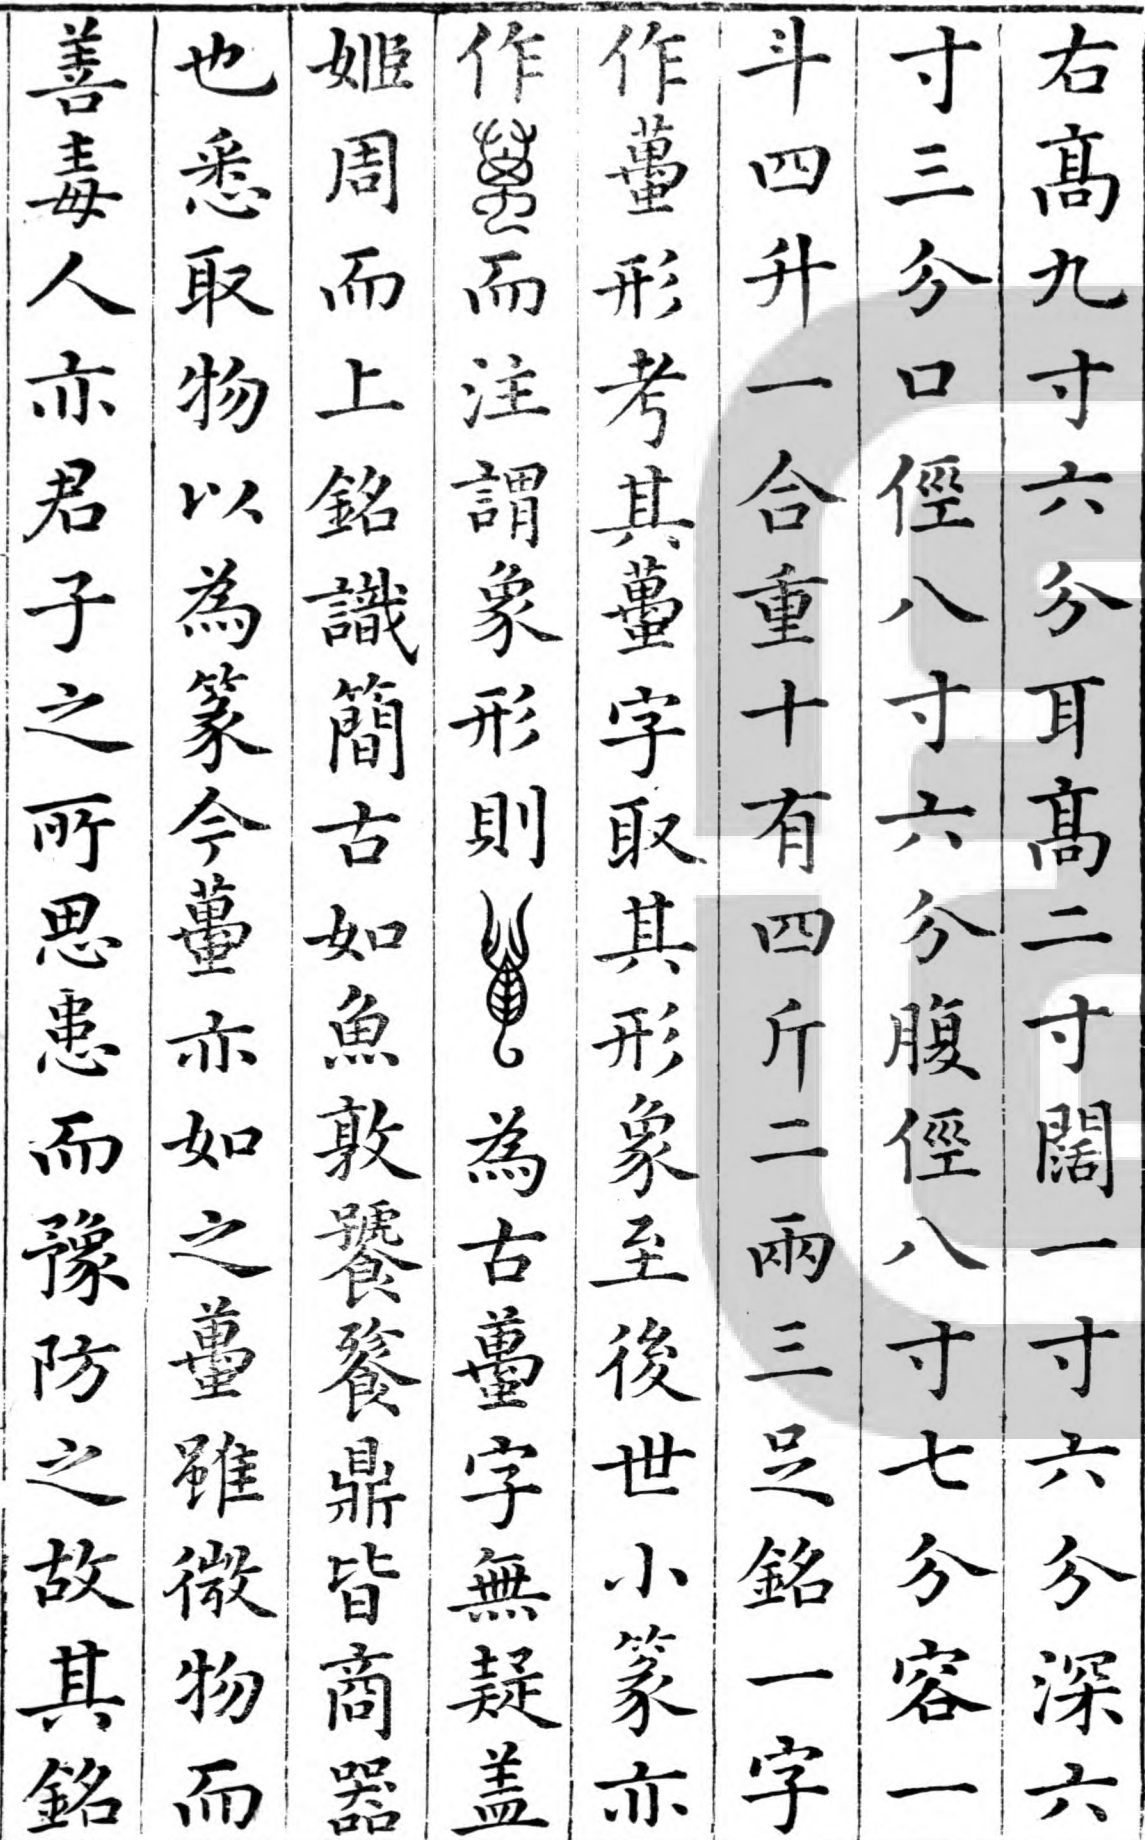 右髙九寸六分耳髙二寸闊一寸六分深六
寸三分口徑八寸六分腹徑八寸七分容一
斗四升一合重十有四斤二兩三足銘一字
作蠆形考其蠆字取其形象至後世小篆亦
作而注謂象形則為古蠆字無疑盖
姬周而上銘識簡古如魚敦饕餮鼎皆商器
也悉取物以為篆今蠆亦如之蠆雖微物而
善毒人亦君子之所思患而豫防之故其銘